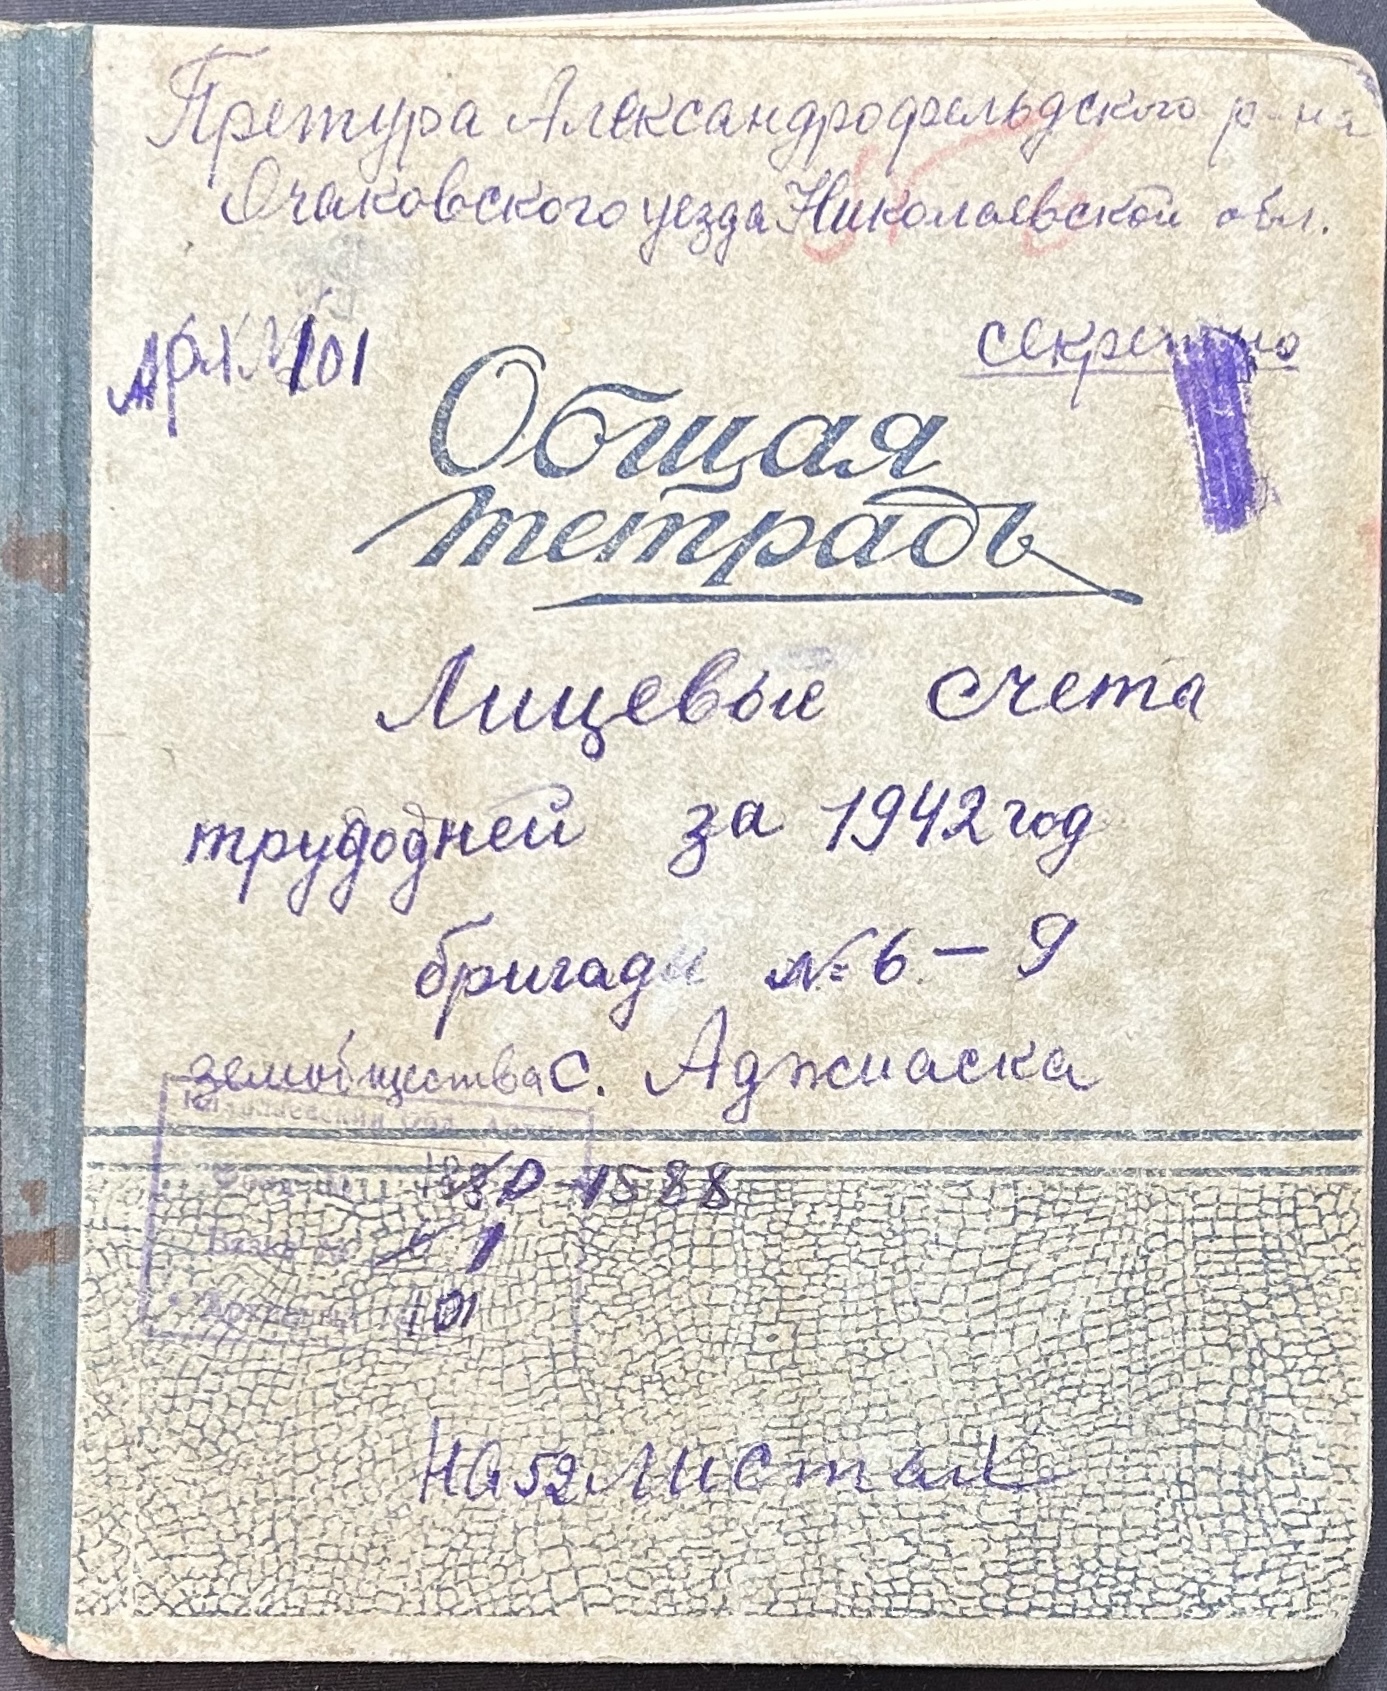 Претура Александрофельдского р-на
Очаковского уезда Николаевской обл.
арх № 101
секретно
Общая
тетрадь
Лицевые счета
трудодней за 1942 год
бригады № 6 – 9
земобщества с. Аджиаска
Николаевский обл. Архив
Фонд Р-1588
1
101
на 52 листах